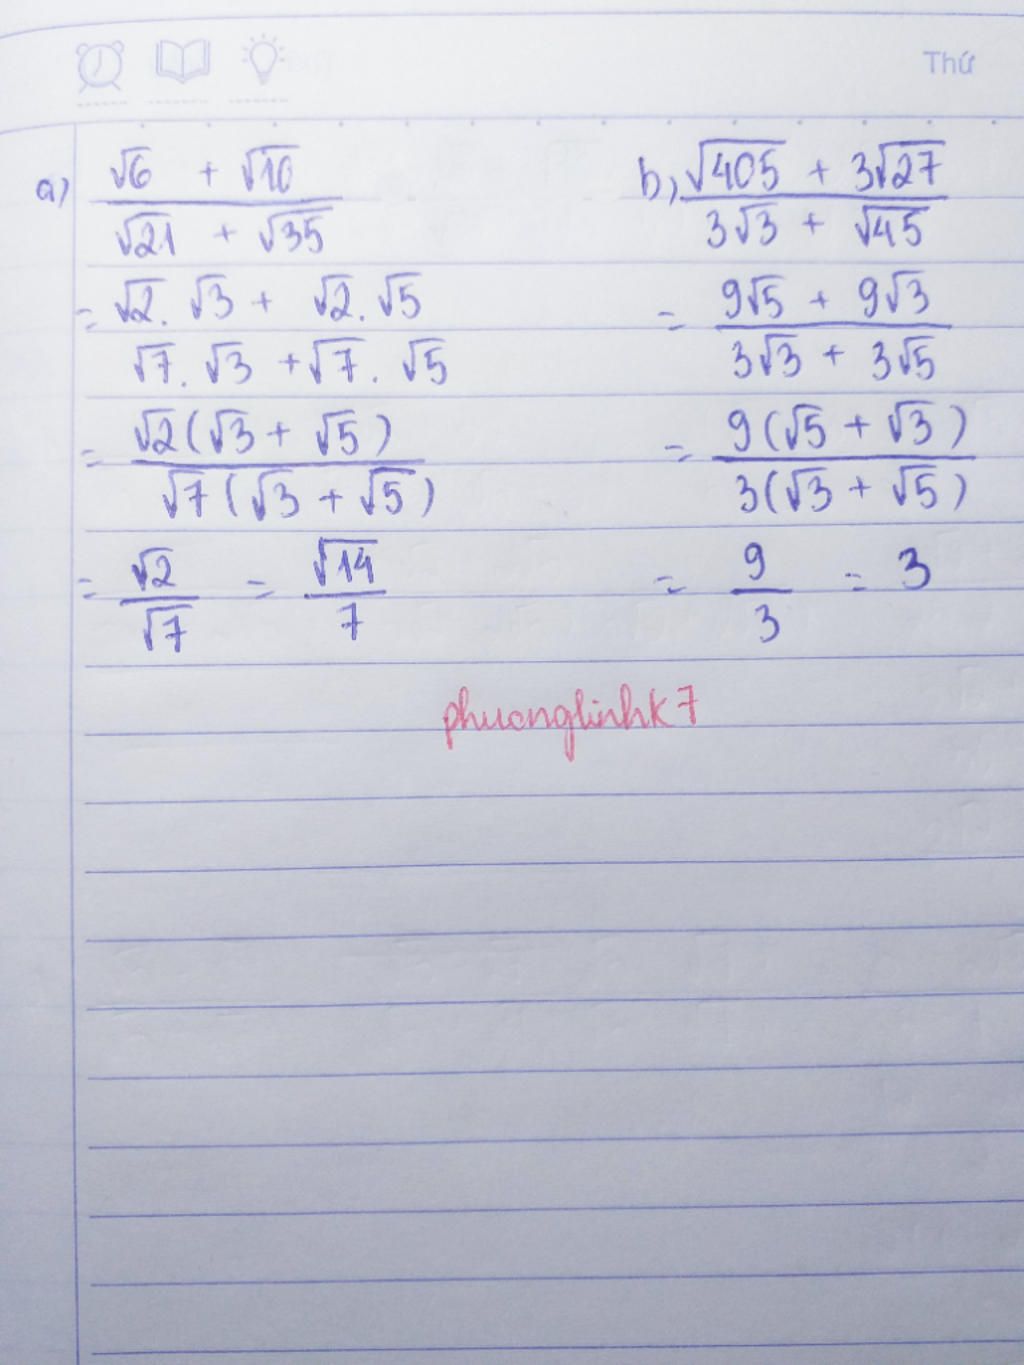 Thứ
a) (√6 + √10)/(√21 + √35)
= (√2. √3 + √2. √5)/(√7. √3 + √7. √5)
= (√2(√3 + √5))/(√7(√3 + √5))
= √2/√7 = √14/7
b, (√405 + 3√27)/(3√3 + √45)
= (9√5 + 9√3)/(3√3 + 3√5)
= (9(√5 + √3))/(3(√3 + √5))
= 9/3 = 3
phuonglinhk7